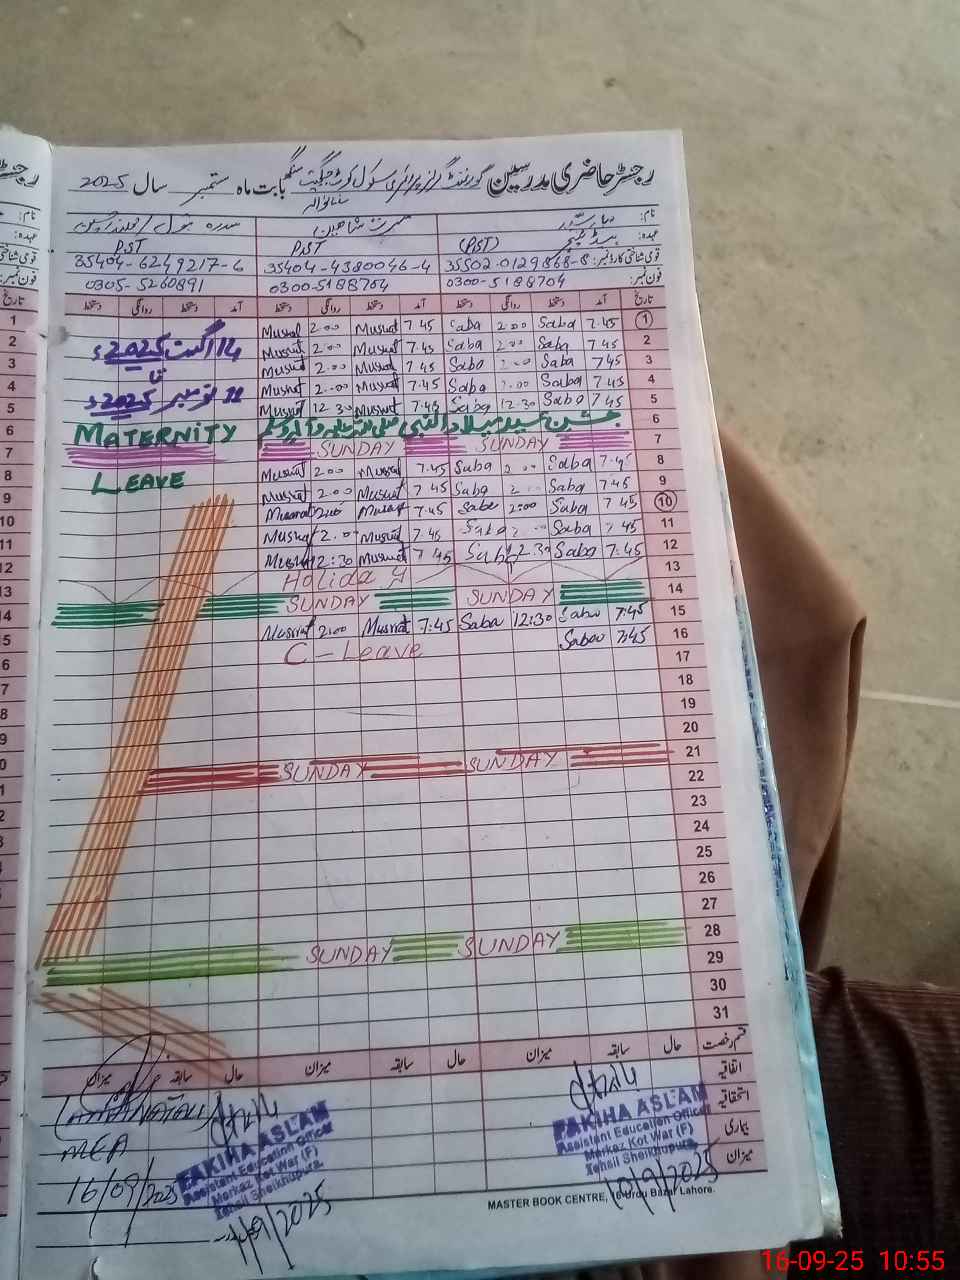 رجسٹر حاضری مدرسین گورنمنٹ گرلز پرائمری سکول کوٹ بابت ماہ ستمبر سال 2025
نام: صابرہ مسرت شاہین سدرہ بتول
عہدہ: ہیڈ ٹیچر (PST) PST PST
قومی شناختی کارڈ نمبر: 35502-0129868-8 35404-4380046-4 35404-6249217-6
فون نمبر: 0300-5188704 0300-5188704 0305-5260891
تاریخ آمد دستخط روانگی دستخط آمد دستخط روانگی دستخط آمد دستخط روانگی دستخط
1 7.45 Saba 2:00 Saba 7.45 Musrat 2:00 Musrat
2 7.45 Saba 2:00 Saba 7.45 Musrat 2:00 Musrat 14 اگست 2025ء
3 7.45 Saba 2:00 Saba 7.45 Musrat 2:00 Musrat تا
4 7.45 Saba 2:00 Saba 7.45 Musrat 2:00 Musrat نومبر 2025ء
5 7.45 Saba 12.30 Saba 7.45 Musrat 12.30 Musrat
6 جشن عید میلاد النبی صلی اللہ علیہ وآلہ وسلم MATERNITY
7 SUNDAY SUNDAY
8 7.45 Saba 2:00 Saba 7.45 Musrat 2:00 Musrat LEAVE
9 7.45 Saba 2:00 Saba 7.45 Musrat 2:00 Musrat
10 7.45 Saba 2:00 Saba 7.45 Musrat 2:00 Musrat
11 7.45 Saba 2:00 Saba 7.45 Musrat 2:00 Musrat
12 7:45 Saba 12:30 Saba 7.45 Musrat 12:30 Musrat
13 Holiday
14 SUNDAY SUNDAY
15 7:45 Saba 12:30 Saba 7:45 Musrat 2:00 Musrat
16 7:45 Saba C-Leave
17
18
19
20
21 SUNDAY SUNDAY
22
23
24
25
26
27
28 SUNDAY SUNDAY
29
30
31
قسم رخصت حال سابقہ میزان حال سابقہ میزان حال سابقہ میزان
اتفاقیہ
استحقاقیہ
بیماری
میزان
MEA
16/09/2025
FAKIHA ASLAM
Assistant Education Officer
Markaz Kot War (F)
Tehsil Sheikhupura
1/9/2025
FAKIHA ASLAM
Assistant Education Officer
Markaz Kot War (F)
Tehsil Sheikhupura
10/9/2025
MASTER BOOK CENTRE, 16 Urdu Bazar Lahore.
16-09-25 10:55